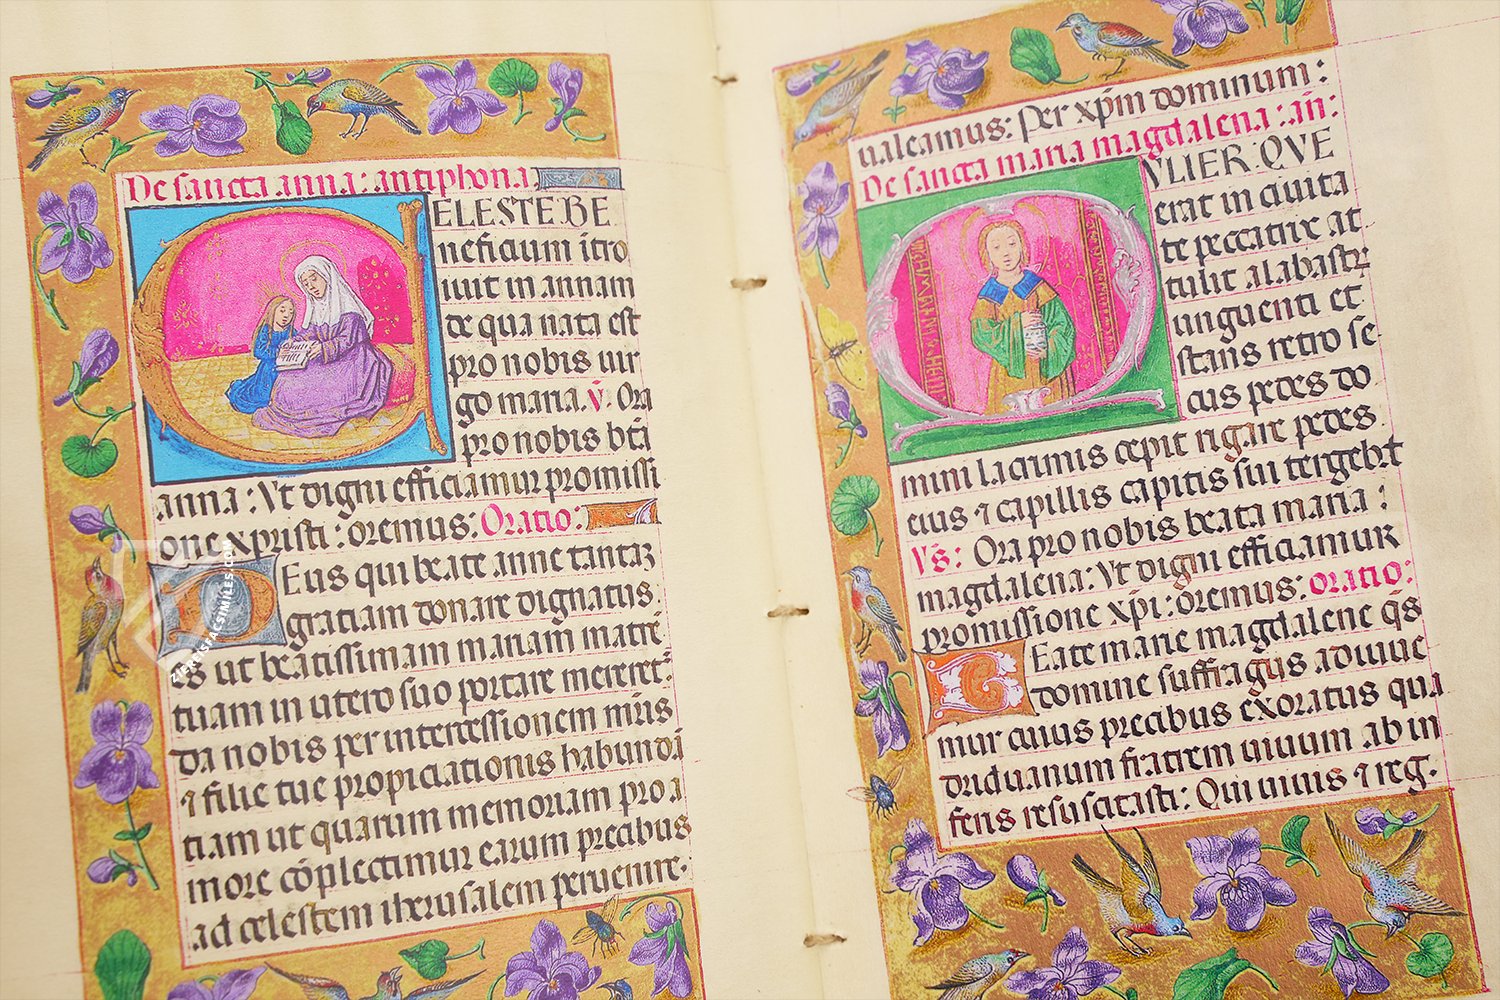 De sancta anna: antiphona.
CELESTE BE
neficium itro
iuit in annam
de qua nata est
pro nobis uir
go maria. v̄. Ora
pro nobis bt̄a
anna: Vt digni efficiamur promissi
one xpristi: oremus: Oratio:
Deus qui beate anne tantaz
gratiam donare dignatus
es ut beatissimam mariam matrē
tuam in utero suo portare meret:
da nobis per intercessionem mr̄is
⁊ filie tue propiciationis habundā
tiam ut quarum memoriam pro a
more cōplectimur earum precibus
ad celestem iherusalem peruenire.
ualeamus: Per xp̄m dominum:
De sancta maria magdalena: añ:
MVLIER QVE
erat in ciuita
te peccatrix at
tulit alabastr
unguenti et
stans retro se
cus pedes do
mini lacrimis cepit rigare pedes
eius ⁊ capillis capitis sui tergeb̄t
Vs̄: Ora pro nobis beata maria:
magdalena: Vt digni efficiamur
promissione xp̄i: oremus: oratio:
Beate marie magdalene q̄s
domine suffragiis adiuue
mur cuius precibus exoratus qua
driduanum fratrem uiuum ab in
feris resuscitasti: Qui uiuis ⁊ reg.
ZIEREISFACSIMILES.COM